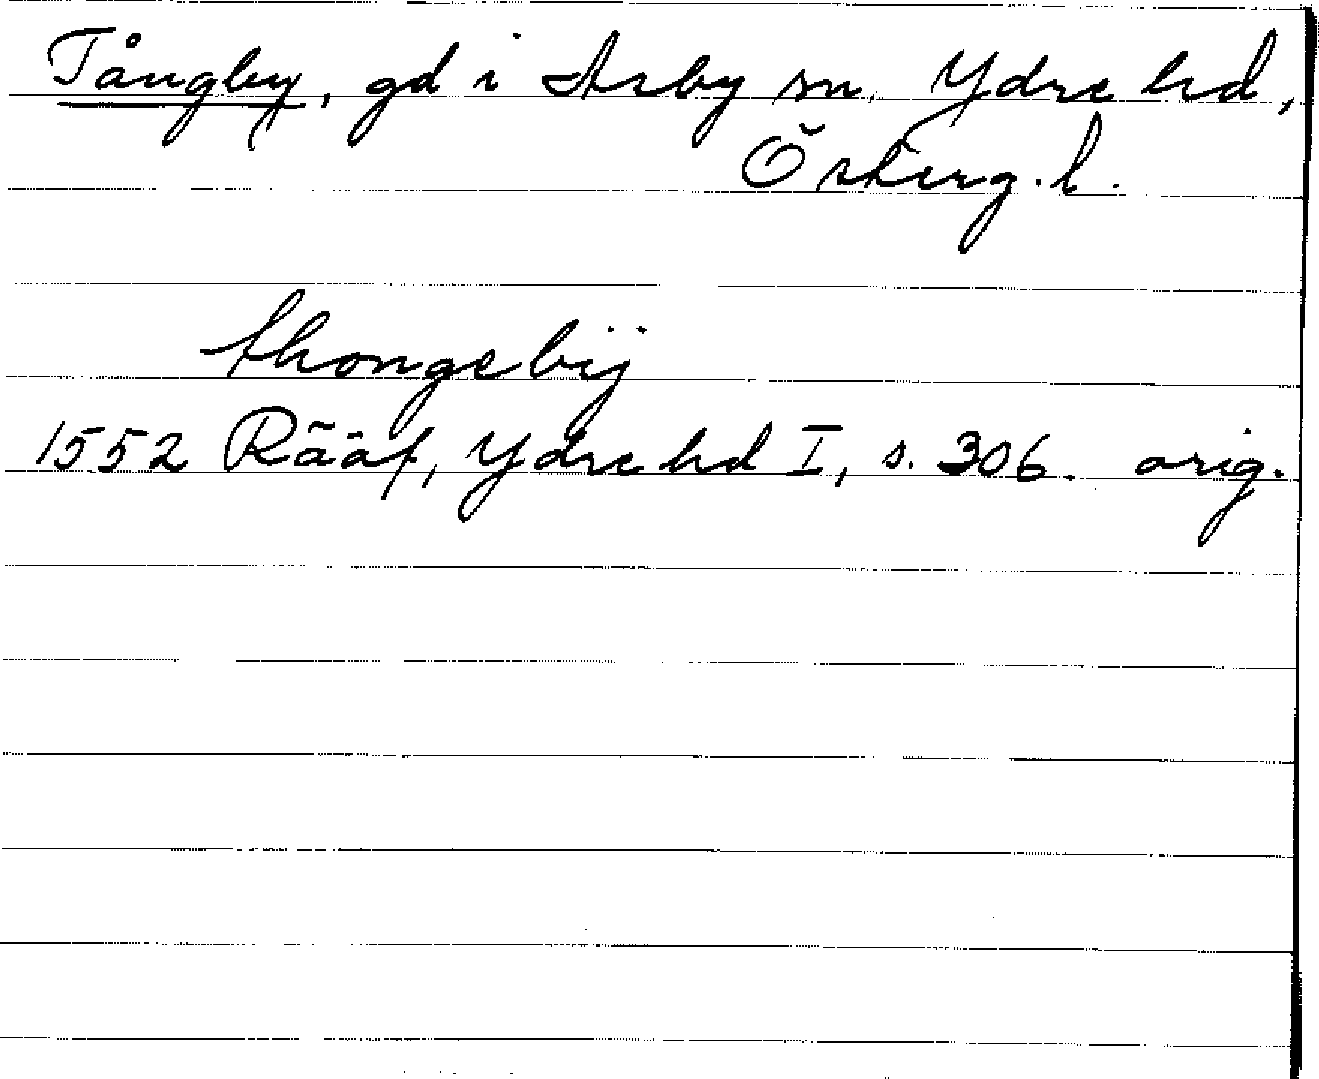 Tångby, gd i Asby sn, Ydre hd,
Österg. l.
thongebÿ
1552 Rääf, Ydre hd I, s. 306. orig.